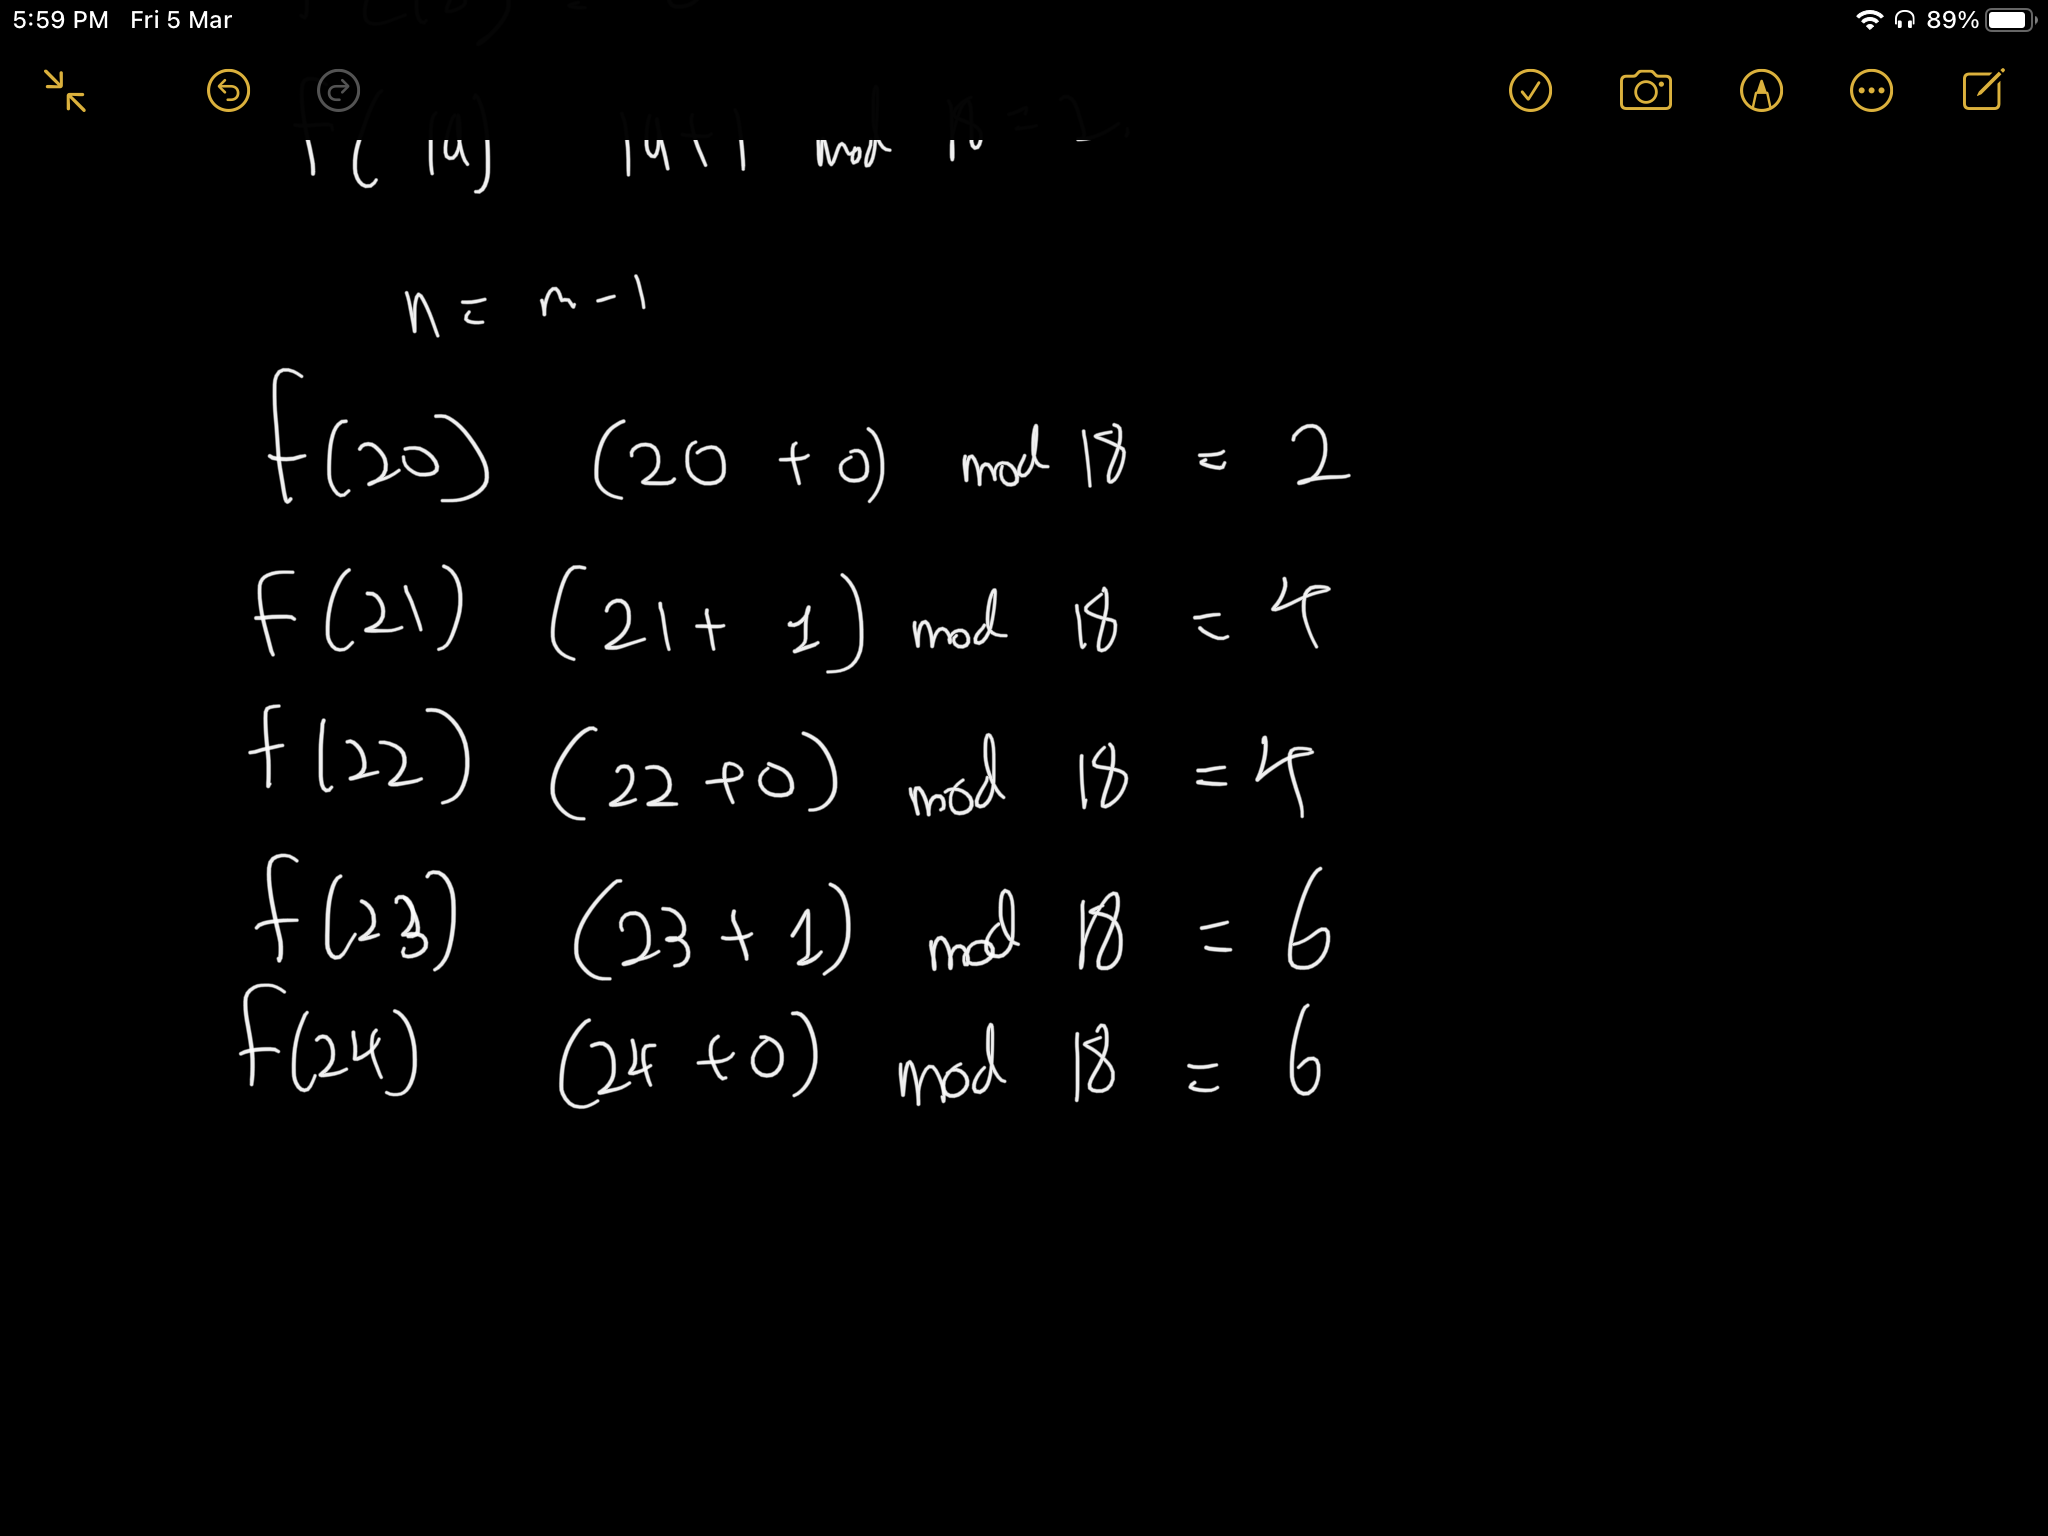 5:59 PM Fri 5 Mar 89%
f( 19) 19+1 mod 18 = 2
n = m - 1
f(20) (20 + 0) mod 18 = 2
f(21) (21 + 1) mod 18 = 4
f(22) (22 + 0) mod 18 = 4
f(23) (23 + 1) mod 18 = 6
f(24) (24 + 0) mod 18 = 6